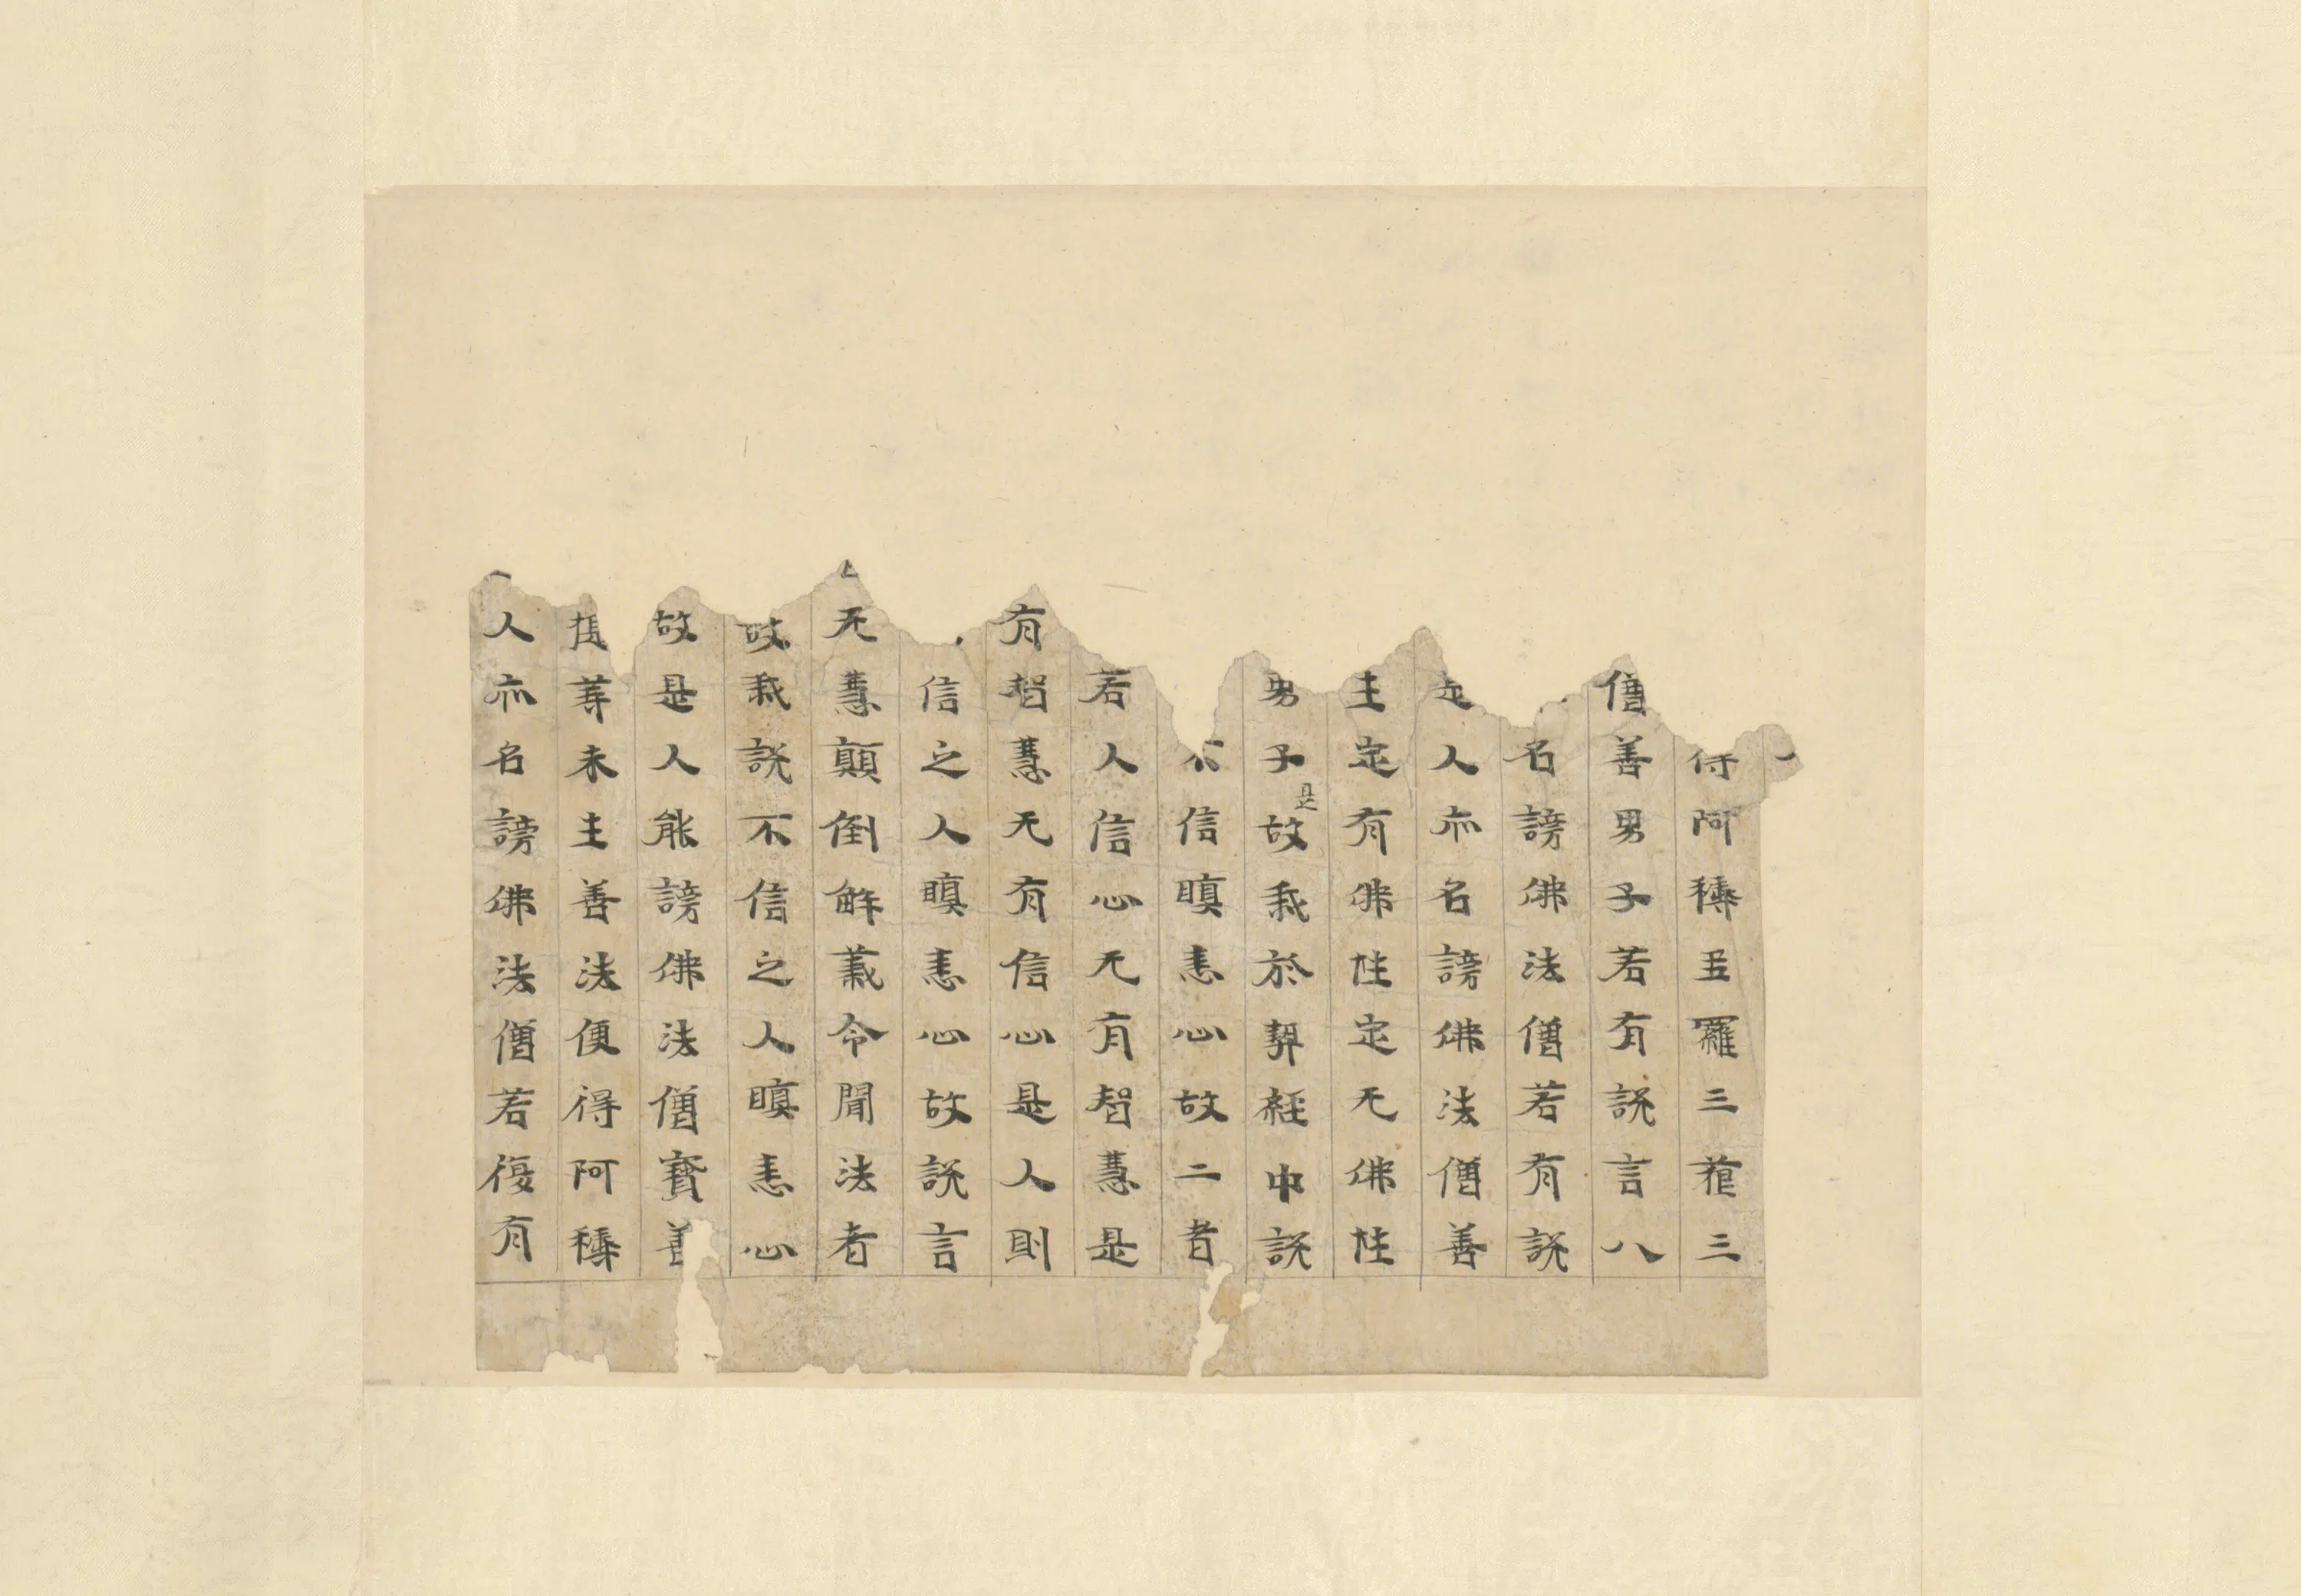 得阿耨多羅三藐三
僧善男子若有説言八
名謗佛法僧若有説
是人亦名謗佛法僧善
生定有佛性定无佛性
男子是故我於契經中説
不信瞋恚心故二者
若人信心无有智慧是
有智慧无有信心是人則
信之人瞋恚心故説言
无慧顛倒解義令聞法者
故我説不信之人瞋恚心
故是人能謗佛法僧寶善
提等未生善法便得阿耨
人亦名謗佛法僧若復有